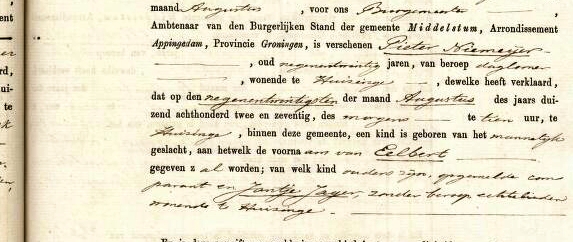 maand Augustus , voor ons Burgemeester ,
Ambtenaar van den Burgerlijken Stand der gemeente Middelstum, Arrondissement
Appingedam, Provincie Groningen, is verschenen Pieter Niemeijer
, oud negenentwintig jaren, van beroep daglooner
, wonende te Huizinge , dewelke heeft verklaard,
dat op den negenentwintigsten der maand Augustus des jaars dui-
zend achthonderd twee en zeventig, des morgens te tien uur, te
Huizinge , binnen deze gemeente, een kind is geboren van het mannelijk
geslacht, aan hetwelk de voorna am van Eelbert
gegeven z al worden; van welk kind ouders zijn, opgemelde com
parant en Jantje Jager, zonder beroep, echtelieden
wonende te Huizinge.